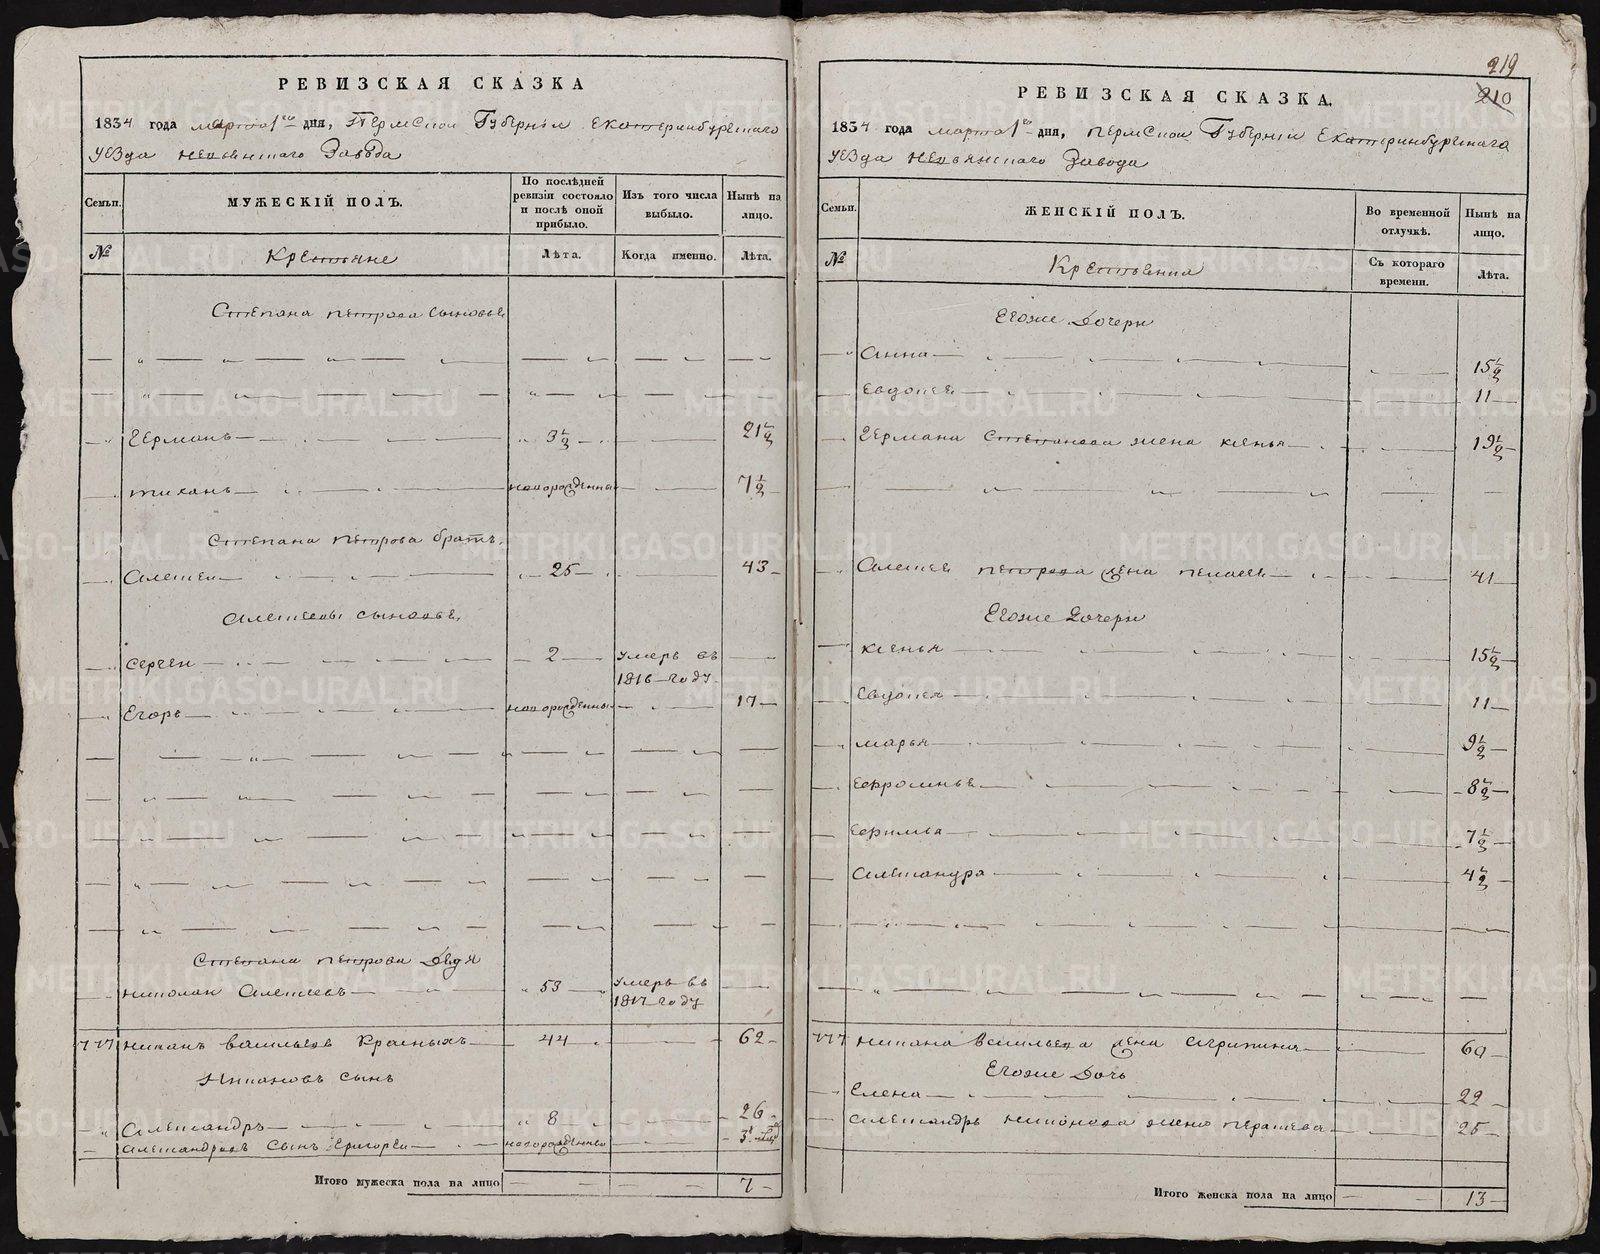 РЕВИЗСКАЯ СКАЗКА
1834 года марта 1го дня, Пермской Губернии Екатеринбургскаго
уезда Невьянскаго Завода
Семьи.
МУЖЕСКІЙ ПОЛЪ.
По послѣдней
ревизіи состояло
и послѣ оной
прибыло.
Изъ того числа
выбыло.
Нынѣ на
лицо.
№
Крестьяне
Лѣта.
Когда именно.
Лѣта.
Степана Петрова сыновья
Германъ 3½ 21½
Тиханъ новорожденный 7½
Степана Петрова братъ
Алексей 25 43
Алексеевы сыновья
Сергей 2 умеръ въ
1816 году
Егоръ новорожденный 17
Степана Петрова Дедя
Николай Алексеевъ 53 умеръ въ
1817 году
777 Никанъ Васильевъ Красныхъ 44 62
Никановъ сынъ
Александръ 8 26
Александровъ сынъ Григорей новорожденный 3
Итого мужеска пола на лицо 7
219
210
РЕВИЗСКАЯ СКАЗКА.
1834 года марта 1го дня, Пермской Губернии Екатеринбургскаго
уезда Невьянскаго Завода
Семьи.
ЖЕНСКІЙ ПОЛЪ.
Во временной
отлучкѣ.
Нынѣ на
лицо.
№
Крестьянки
Съ котораго
времени.
Лѣта.
Егоже Дочери
Анна 15½
Евдокея 11
Германа Степанова жена Ксенья 19½
Алексея Петрова жена Пелагея 41
Егоже Дочери
Ксенья 15½
Евдокея 11
Марья 9½
Ефросинья 8½
Ефимья 7½
Александра 4½
777 Никана Васильева жена Агрипина 60
Егоже Дочь
Елена 22
Александра Никонова жена 25
Итого женска пола на лицо 13
METRIKI.GASO-URAL.RU